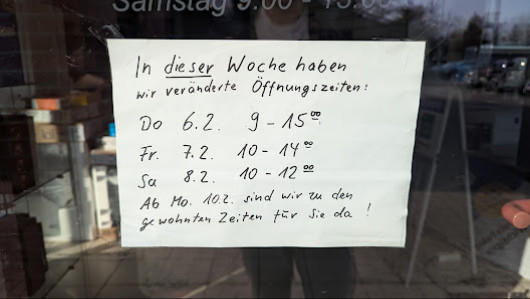 Samstag 9.00 - 13.00
In dieser Woche haben
wir veränderte Öffnungszeiten:
Do 6.2. 9 - 15⁰⁰
Fr. 7.2. 10 - 14⁰⁰
Sa 8.2. 10 - 12⁰⁰
Ab Mo. 10.2. sind wir zu den
gewohnten Zeiten für Sie da !